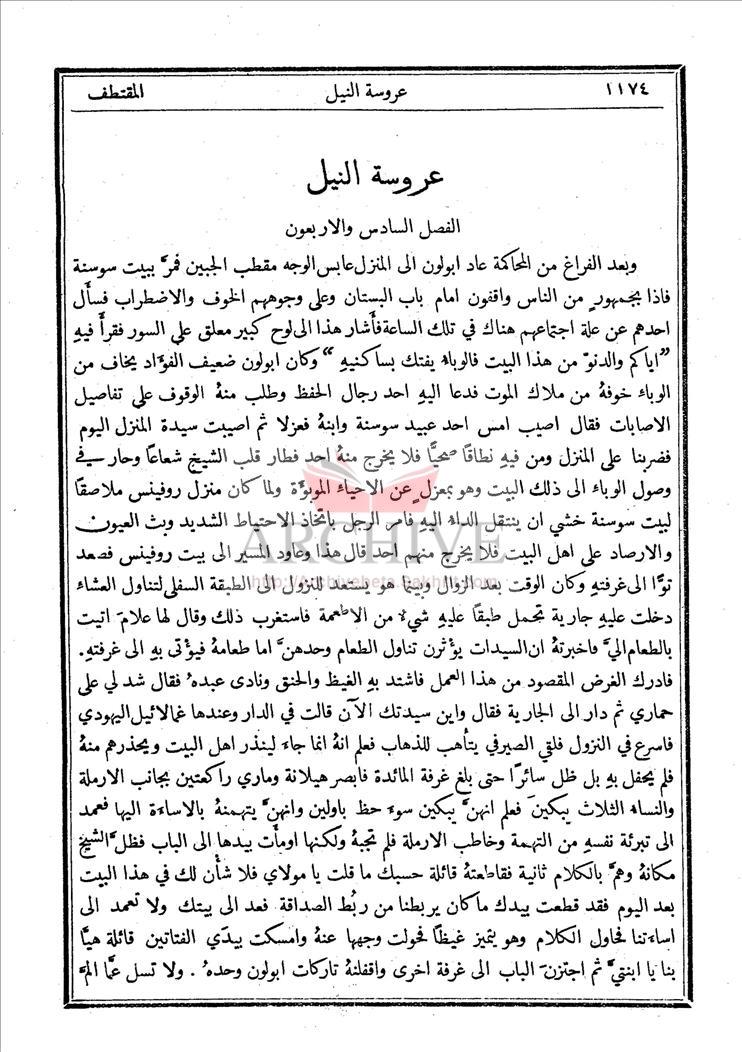 ١١٧٤ عروسة النيل المقتطف
عروسة النيل
الفصل السادس والاربعون
وبعد الفراغ من المحاكمة عاد ابولون الى المنزل عابس الوجه مقطب الجبين فمرَّ ببيت سوسنة
فاذا بجمهورٍ من الناس واقفون امام باب البستان وعلى وجوههم الخوف والاضطراب فسأَل
احدهم عن علة اجتماعهم هناك في تلك الساعة فأشار هذا الى لوح كبير معلق على السور فقرأَ فيهِ
”اياكم والدنوّ من هذا البيت فالوباء يفتك بساكنيهِ“ وكان ابولون ضعيف الفؤاد يخاف من
الوباء خوفهُ من ملاك الموت فدعا اليهِ احد رجال الحفظ وطلب منهُ الوقوف على تفاصيل
الاصابات فقال اصيب امس احد عبيد سوسنة وابنهُ فعزلا ثم اصيبت سيدة المنزل اليوم
فضربنا على المنزل ومن فيهِ نطاقًا صحيًّا فلا يخرج منهُ احد فطار قلب الشيخ شعاعًا وحار في
وصول الوباء الى ذلك البيت وهو بمعزلٍ عن الاحياء الموبوَّة ولما كان منزل روفينس ملاصقًا
لبيت سوسنة خشي ان ينتقل الداء اليهِ فامر الرجل باتخاذ الاحتياط الشديد وبث العيون
ARCHIVE
والارصاد على اهل البيت فلا يخرج منهم احد قال هذا وعاود المسير الى بيت روفينس فصعد
http://Archivebeta.Sakhrit.com
توًّا الى غرفتهِ وكان الوقت بعد الزوال وبينما هو يستعد للنزول الى الطبقة السفلى لتناول العشاء
دخلت عليهِ جارية تحمل طبقًا عليهِ شيءٌ من الاطعمة فاستغرب ذلك وقال لها علامَ اتيت
بالطعام اليَّ فاخبرتهُ ان السيدات يؤثرن تناول الطعام وحدهنَّ اما طعامهُ فيؤتى بهِ الى غرفتهِ.
فادرك الغرض المقصود من هذا العمل فاشتد بهِ الغيظ والحنق ونادى عبدهُ فقال شد لي على
حماري ثم دار الى الجارية فقال واين سيدتك الآن قالت في الدار وعندها غمالائيل اليهودي
فاسرع في النزول فلقي الصيرفي يتأهب للذهاب فعلم انهُ انما جاءَ لينذر اهل البيت ويحذرهم منهُ
فلم يحفل بهِ بل ظل سائرًا حتى بلغ غرفة المائدة فابصر هيلانة وماري راكعتين بجانب الارملة
والنساء الثلاث يبكينَ فعلم انهنَّ يبكين سوء حظ باولين وانهنَّ يتهمنهُ بالاساءة اليها فعمد
الى تبرئة نفسهِ من التهمة وخاطب الارملة فلم تجبهُ ولكنها اومأَت بيدها الى الباب فظلَّ الشيخ
مكانهُ وهمَّ بالكلام ثانية فقاطعتهُ قائلة حسبك ما قلت يا مولاي فلا شأن لك في هذا البيت
بعد اليوم فقد قطعت بيدك ما كان يربطنا من ربُط الصداقة فعد الى بيتك ولا تعمد الى
اساءتنا فحاول الكلام وهو يتميز غيظًا فحولت وجهها عنهُ وامسكت بيدَي الفتاتين قائلة هيَّا
بنا يا ابنتيَّ ثم اجتزنَ الباب الى غرفة اخرى واقفلنهُ تاركات ابولون وحدهُ. ولا تسل عمَّا المَّ